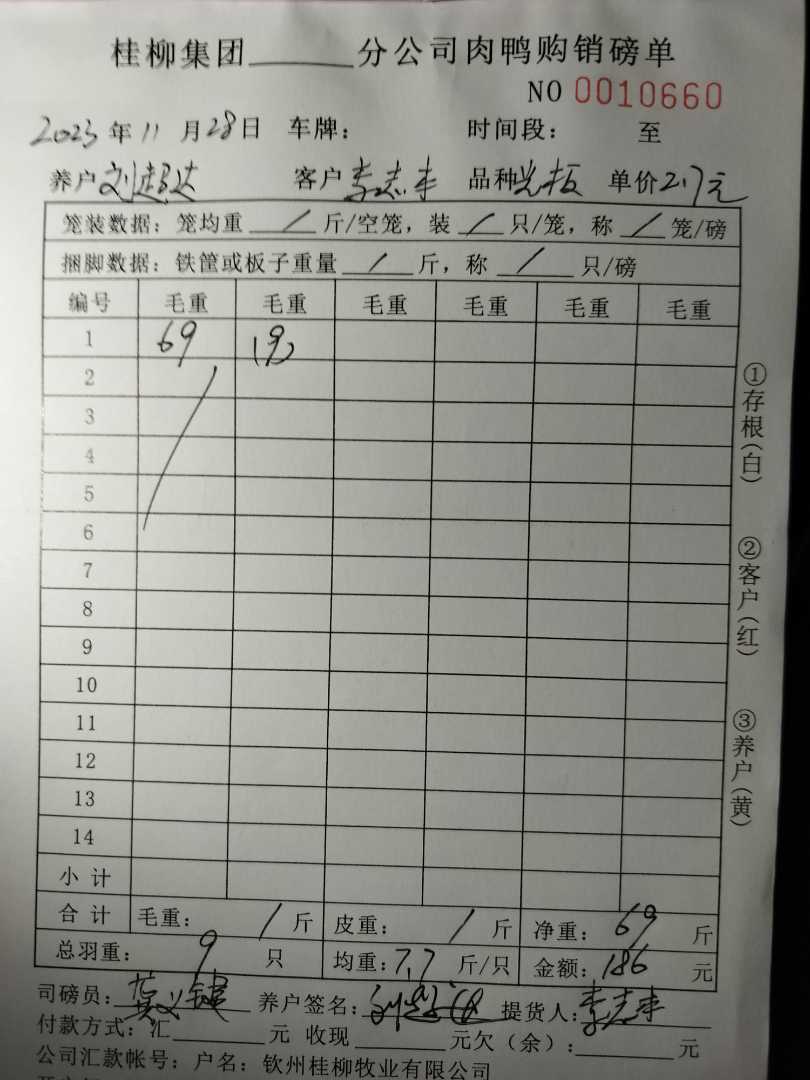 桂柳集团______分公司肉鸭购销磅单
NO 0010660
2023年11月28日 车牌: 时间段: 至
养户刘超达 客户李志丰 品种光板 单价2.7元
笼装数据: 笼均重 / 斤/空笼, 装 / 只/笼, 称 / 笼/磅
捆脚数据: 铁筐或板子重量 / 斤, 称 / 只/磅
编号 毛重 毛重 毛重 毛重 毛重 毛重
1 69 (9)
2
3
4
5
6
7
8
9
10
11
12
13
14
小计
合计 毛重: / 斤 皮重: / 斤 净重: 69 斤
总羽重: 9 只 均重: 7.7 斤/只 金额: 186 元
司磅员: 养户签名: 提货人: 李志丰
付款方式: 汇______元 收现______元欠(余): ______元
公司汇款帐号: 户名: 钦州桂柳牧业有限公司
①存根(白)
②客户(红)
③养户(黄)